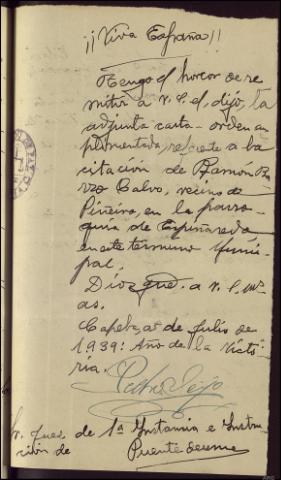 ¡¡Viva España!!
Tengo el honor de re
mitir a V. S. el, dijo, la
adjunta carta-orden cum
plimentada, referente a la
citación de Ramón
Calvo, vecino de
Piñeiro, en la parro-
quia de Espiñaredo
en este término Muni-
pal.
Dios gue. a V. S. m.
as.
Capela, a de Julio de
1939: Año de la Victo-
ria.
Pedro Seijo
Sr. Juez de 1ª Instancia e Instru
cción de Puentedeume